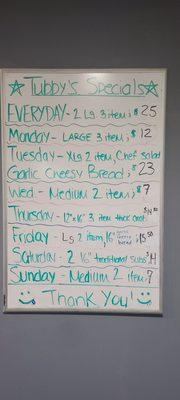 ☆ Tubby's Specials ☆
EVERYDAY - 2 LG 3 item; $25
Monday - LARGE 3 item; $12
Tuesday - XLG 2 item, Chef salad
Garlic Cheesy Bread; $23
Wed - Medium 2 item; $7
Thursday - 12"x16" 3 item thick crust $14
Friday - LG 2 item, 16" garlic cheesy bread; $15.50
Saturday - 2 16" traditional subs $14
Sunday - Medium 2 item; 7
Thank You!